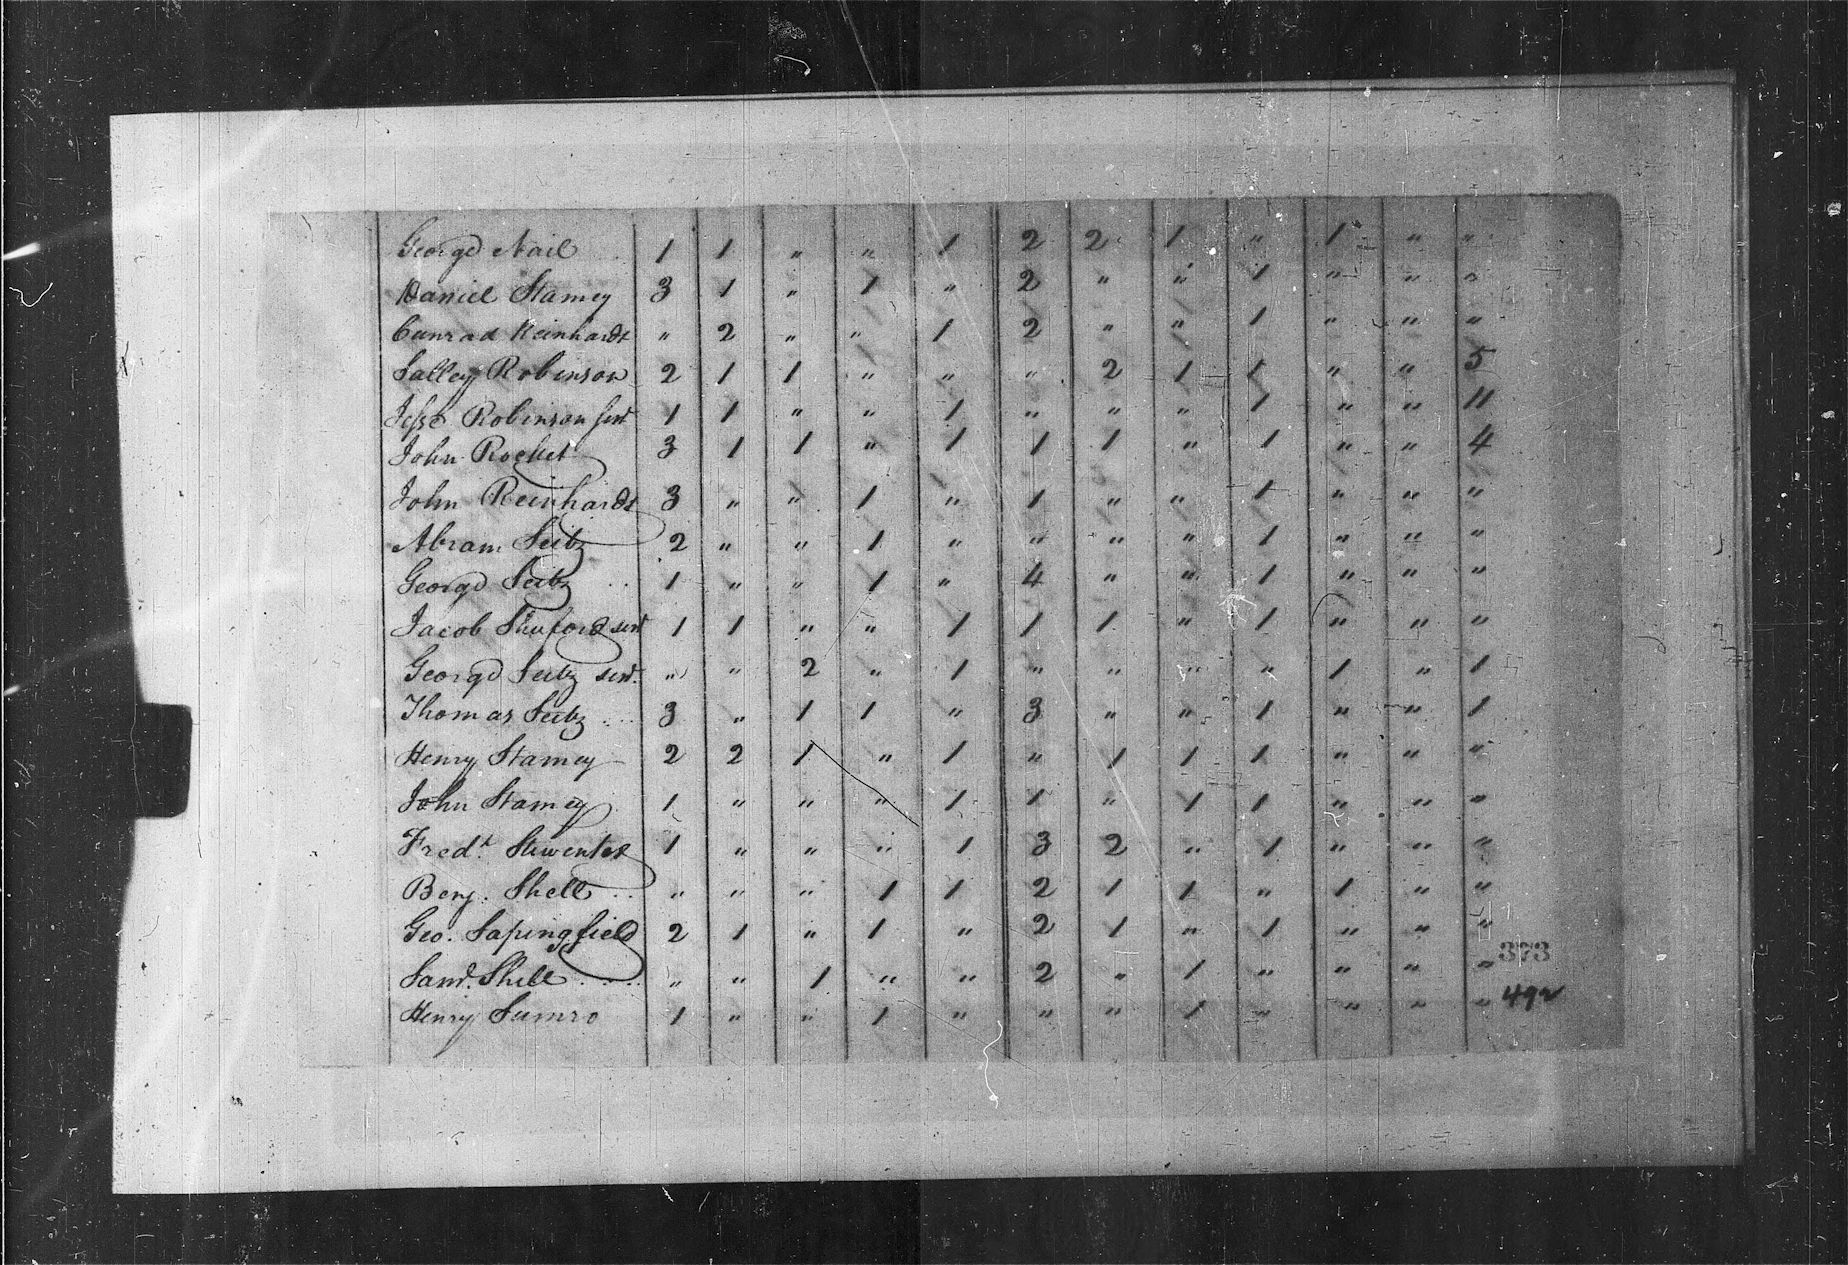 George Nail 1 1 " " 1 2 2 1 " 1 " "
Daniel Stamey 3 1 " 1 " 2 " " 1 " " "
Cunrad Reinhardt " 2 " " 1 2 " " 1 " " "
Salley Robinson 2 1 1 " " " 2 1 1 " " 5
Jesse Robinson 1 1 " " 1 " " " 1 " " 11
John Rocket 3 1 1 " 1 1 1 " 1 " " 4
John Reinhardt 3 " " 1 " 1 " " 1 " " "
Abram Seitz 2 " " 1 " " " " 1 " " "
George Seitz 1 " " 1 " 4 " " 1 " " "
Jacob Shuford senr 1 1 " " 1 1 1 " 1 " " "
George Seitz senr. " " 2 " 1 " " " " 1 " 1
Thomas Seitz 3 " 1 1 " 3 " " 1 " " 1
Henry Stamey 2 2 1 " 1 " 1 1 1 " " "
John Stamey 1 " " " 1 1 " 1 1 " " "
Fredk. 1 " " " 1 3 2 " 1 " " "
Benj. Shell " " " 1 1 2 1 1 " 1 " "
Geo. Sapingfield 2 1 " 1 " 2 1 " 1 " " "
Saml. Shell " " 1 " " 2 " 1 " " " "
373
Henry Sumro 1 " " 1 " " " 1 " " " "